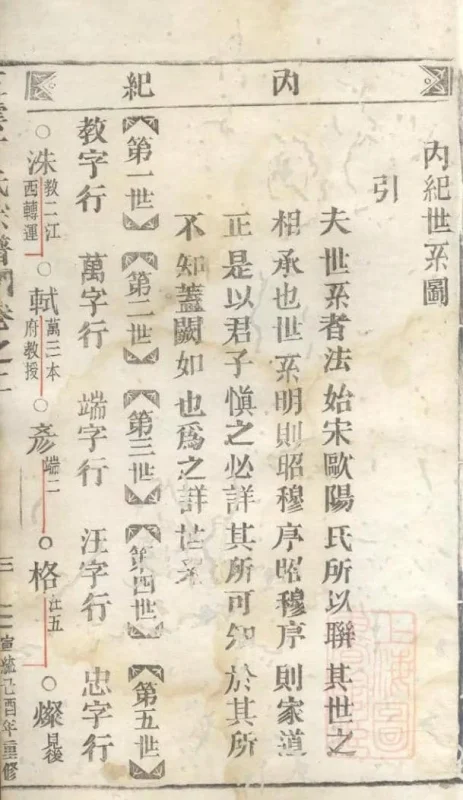 內紀
內紀世系圖
引
夫世系者法始宋歐陽氏所以聯其世之
相承也世系明則昭穆序昭穆序則家道
正是以君子愼之必詳其所可知於其所
不知蓋闕如也爲之詳世系
第一世 第二世 第三世 第四世 第五世
教字行 萬字行 端字行 汪字行 忠字行
洙 教二江西轉運 軾 萬三本府教授 彦 端二 格 汪五 燦 見後
氏宗譜 卷之二
三 宣統己酉年重修